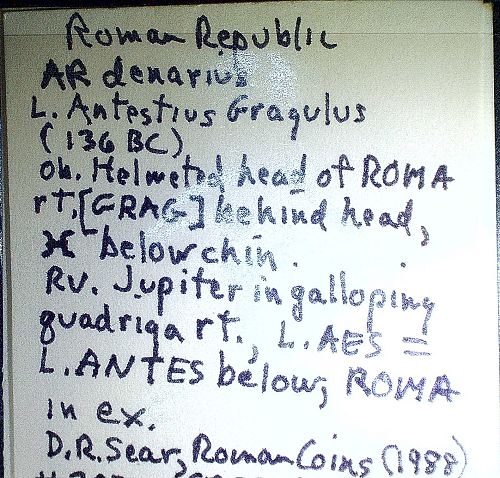 Roman Republic
AR denarius
L. Antestius Gragulus
(136 BC)
Ob. Helmeted head of ROMA
rt., [GRAG] behind head,
Ӿ below chin.
RV. Jupiter in galloping
quadriga rt., L.AES =
L.ANTES below; ROMA
in ex.
D.R.Sear, Roman Coins (1988)